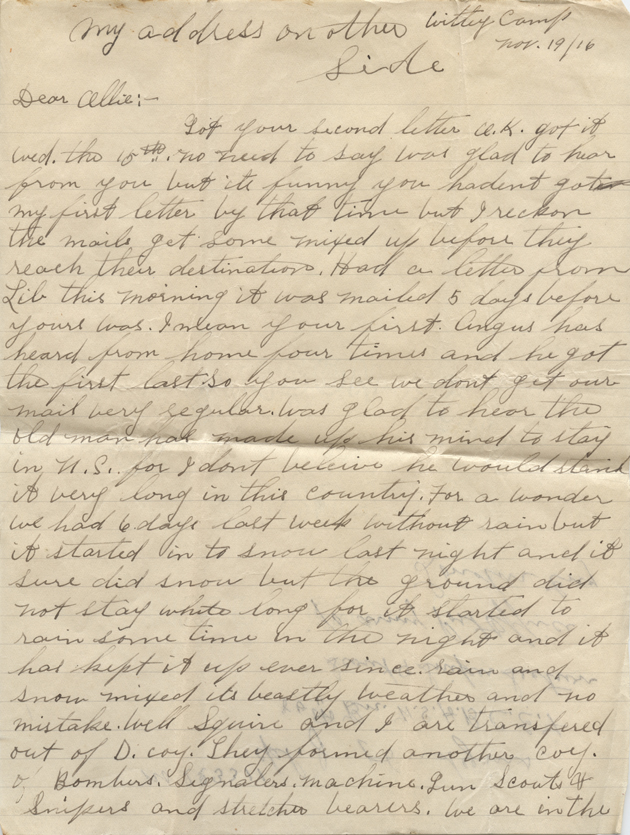 my address on other
Side
Witley Camp
nov. 19/16
Dear Allie:-
Got your second letter O.K. got it
wed. the 15th. no need to say was glad to hear
from you but its funny you hadent got
my first letter by that time but I reckon
the mails get some mixed up before they
reach their destination. Had a letter from
Lib this morning it was mailed 5 days before
yours was. I mean your first. Angus has
heard from home four times and he got
the first last. So you see we dont get our
mail very regular. Was glad to hear the
old man has made up his mind to stay
in N.S. for I dont beleive he would stand
it very long in this country. For a wonder
we had 6 days last week without rain but
it started in to snow last night and it
sure did snow but the ground did
not stay white long for it started to
rain some time in the night and it
has kept it up ever since. rain and
snow mixed its beastly weather and no
mistake. Well Squire and I are transfered
out of D. coy. They formed another coy.
of Bombers. Signalers. machine. Gun Scouts &
Snipers and stretcher bearers. We are in the